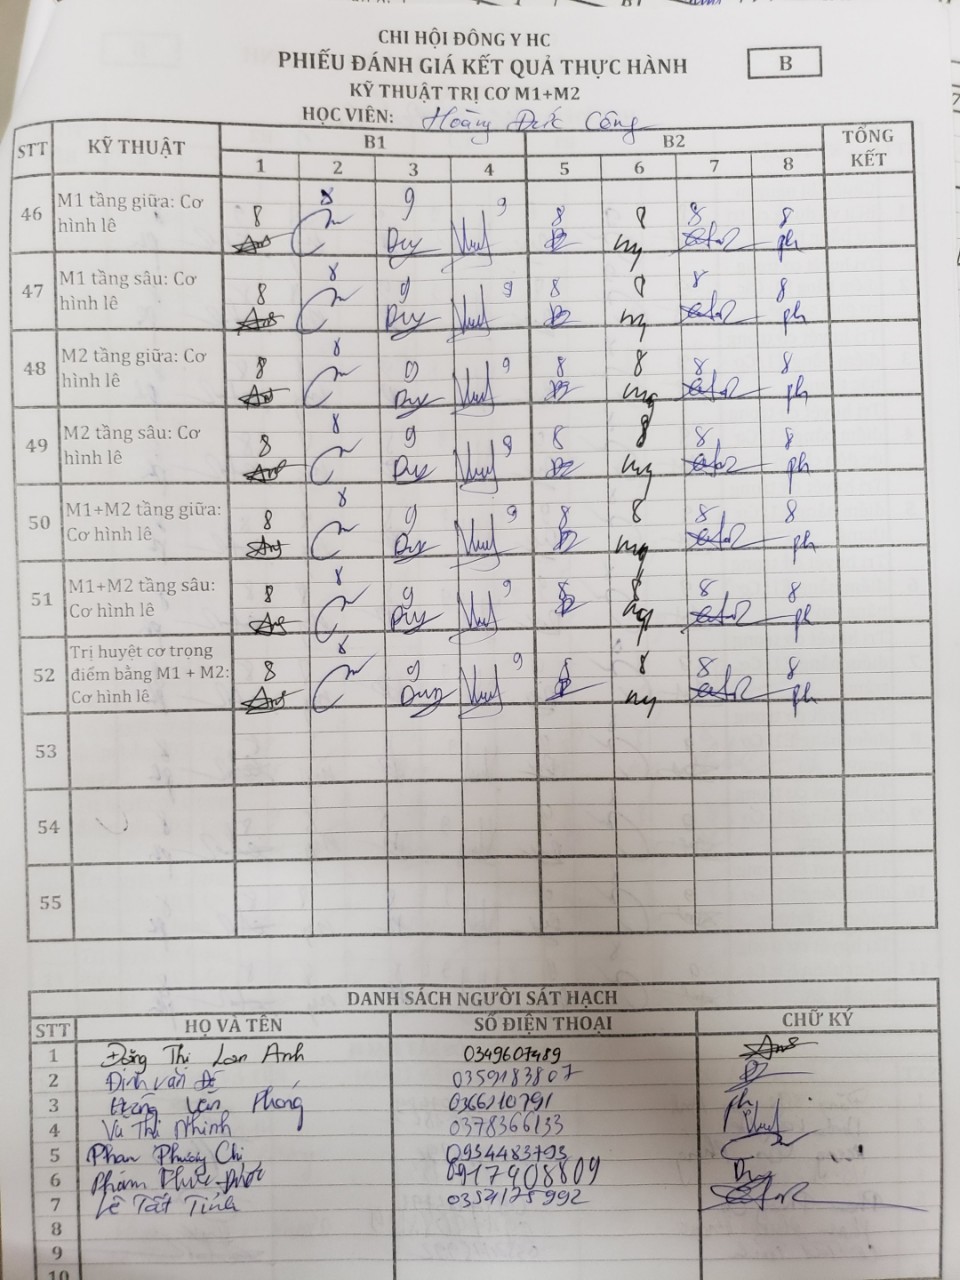 CHI HỘI ĐÔNG Y HC
PHIẾU ĐÁNH GIÁ KẾT QUẢ THỰC HÀNH
B
KỸ THUẬT TRỊ CƠ M1+M2
HỌC VIÊN: Hoàng Đức Công
STT KỸ THUẬT B1 B2 TỔNG KẾT
1 2 3 4 5 6 7 8
46 M1 tầng giữa: Cơ hình lê 8 8 9 9 8 8 8 8
Duy ph
47 M1 tầng sâu: Cơ hình lê 8 8 9 9 8 8 8 8
Duy ph
48 M2 tầng giữa: Cơ hình lê 8 8 9 9 8 8 8 8
Duy ph
49 M2 tầng sâu: Cơ hình lê 8 8 9 8 8 8 8 8
Duy ph
50 M1+M2 tầng giữa: Cơ hình lê 8 8 9 9 8 8 8 8
Duy ph
51 M1+M2 tầng sâu: Cơ hình lê 8 8 9 9 8 8 8 8
Duy ph
52 Trị huyệt cơ trọng điểm bằng M1 + M2: Cơ hình lê 8 8 9 9 8 8 8 8
Duy ph
53
54
55
DANH SÁCH NGƯỜI SÁT HẠCH
STT HỌ VÀ TÊN SỐ ĐIỆN THOẠI CHỮ KÝ
1 Đặng Thị Lan Anh 0349607489
2 Đinh Văn Đề 0359183807
3 Văn Phong 0366210791 ph
4 Vũ Thị Nhinh 0378366133
5 Phan Phương Chi 0934483793
6 Phạm 0917908809
7 Lê Tất Tính 0354175992
8
9
10